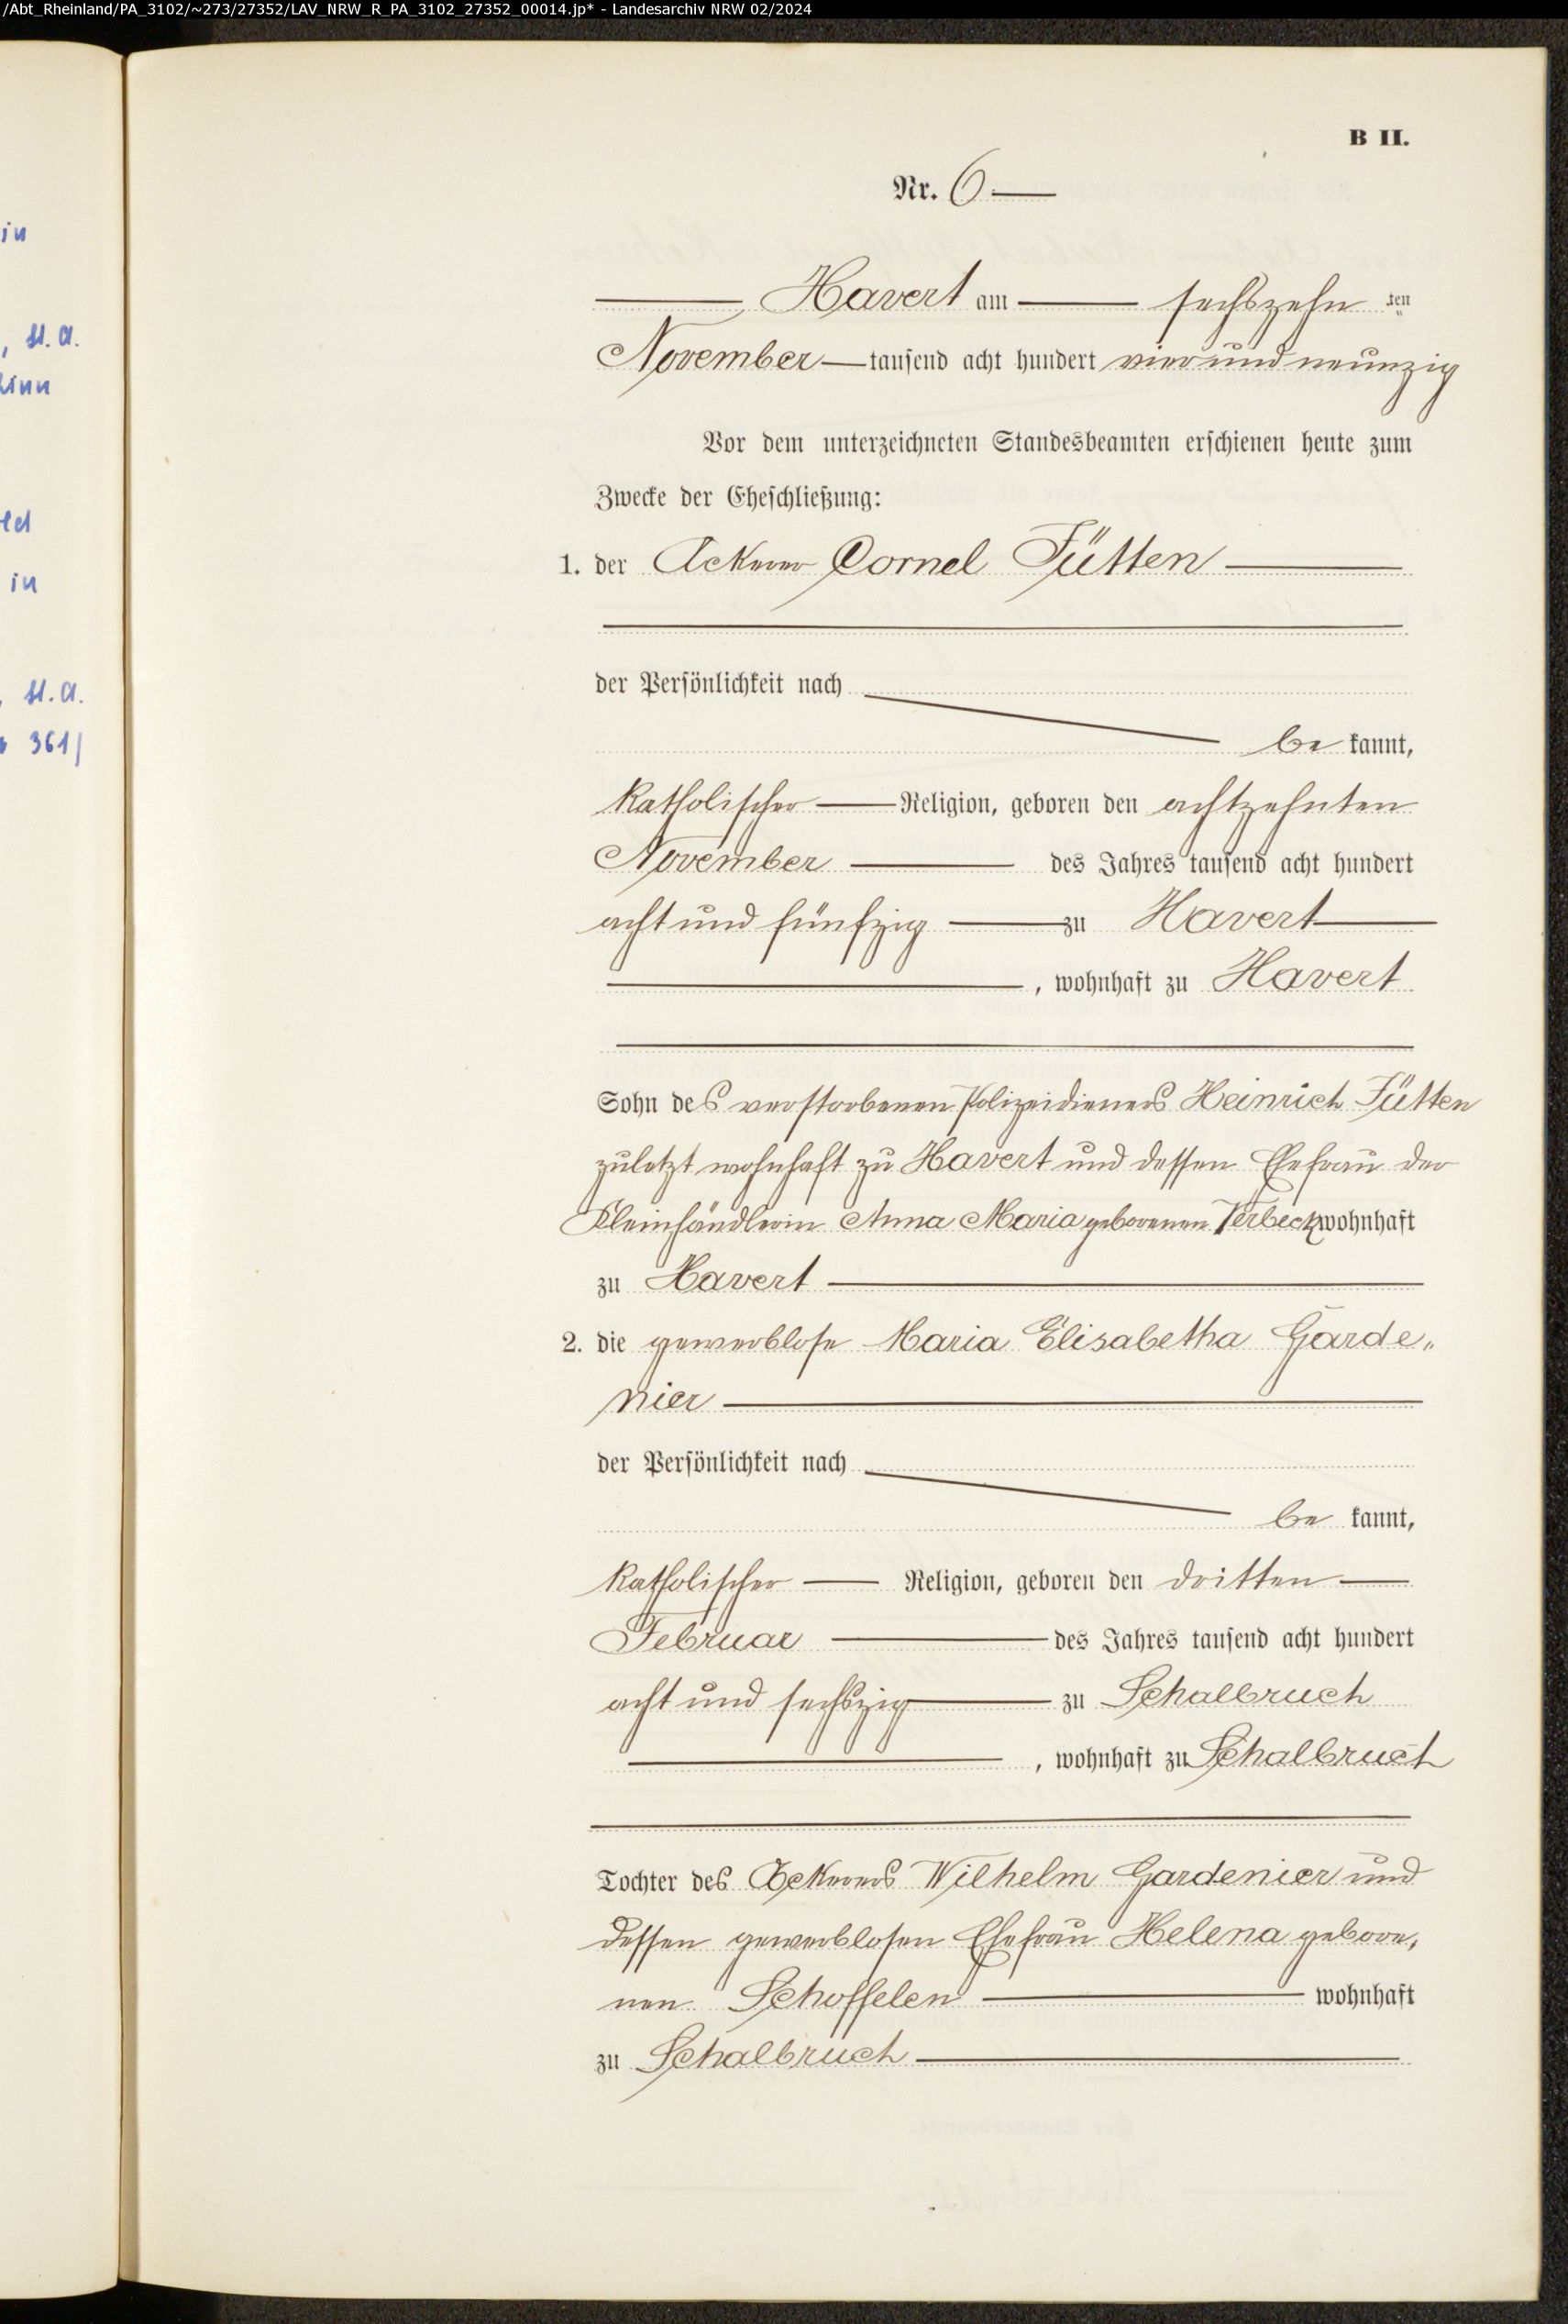 /Abt_Rheinland/PA_3102/~273/27352/LAV_NRW_R_PA_3102_27352_00014.jp* - Landesarchiv NRW 02/2024
in
, St. A.
ld
in
, St. A.
361/
B II.
Nr. 6
Havert am sechszehn ten
November tausend acht hundert vier und neunzig
Vor dem unterzeichneten Standesbeamten erschienen heute zum
Zwecke der Eheschließung:
1. der Ackerer Cornel Jütten
der Persönlichkeit nach
be kannt,
katholischer Religion, geboren den achtzehnten
November des Jahres tausend acht hundert
acht und fünfzig zu Havert
, wohnhaft zu Havert
Sohn des verstorbenen Polizeidieners Heinrich Jütten
zuletzt wohnhaft zu Havert und dessen Ehefrau der
Kleinhändlerin Anna Maria geborenen Verbeck wohnhaft
zu Havert
2. die gewerblose Maria Elisabetha Garde„
nier
der Persönlichkeit nach
be kannt,
katholischer Religion, geboren den dritten
Februar des Jahres tausend acht hundert
acht und sechszig zu Schalbruch
, wohnhaft zu Schalbruch
Tochter des Ackerers Wilhelm Gardenier und
dessen gewerblosen Ehefrau Helena gebore,
nen Schoffelen wohnhaft
zu Schalbruch